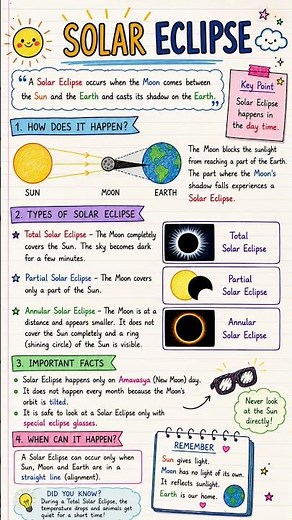 SOLAR ECLIPSE
"A Solar Eclipse occurs when the Moon comes between
the Sun and the Earth and casts its shadow on the Earth."
Key Point
Solar Eclipse
happens in
the day time.
1. HOW DOES IT HAPPEN?
SUN
MOON
EARTH
The Moon blocks the sunlight
from reaching a part of the Earth.
The part where the Moon's
shadow falls experiences a
Solar Eclipse.
2. TYPES OF SOLAR ECLIPSE
Total Solar Eclipse - The Moon completely
covers the Sun. The sky becomes dark
for a few minutes.
Total
Solar Eclipse
Partial Solar Eclipse - The Moon covers
only a part of the Sun.
Partial
Solar Eclipse
Annular Solar Eclipse - The Moon is at a
distance and appears smaller. It does not
cover the Sun completely and a ring
(shining circle) of the Sun is visible.
Annular
Solar Eclipse
3. IMPORTANT FACTS
Solar Eclipse happens only on Amavasya (New Moon) day.
It does not happen every month because the Moon's
orbit is tilted.
It is safe to look at a Solar Eclipse only with
special eclipse glasses.
Never look
at the Sun
directly!
4. WHEN CAN IT HAPPEN?
A Solar Eclipse can occur only when
Sun, Moon and Earth are in a
straight line (alignment).
REMEMBER
Sun gives light.
Moon has no light of its own.
It reflects sunlight.
Earth is our home.
DID YOU KNOW?
During a Total Solar Eclipse, the
temperature drops and animals get
quiet for a short time!